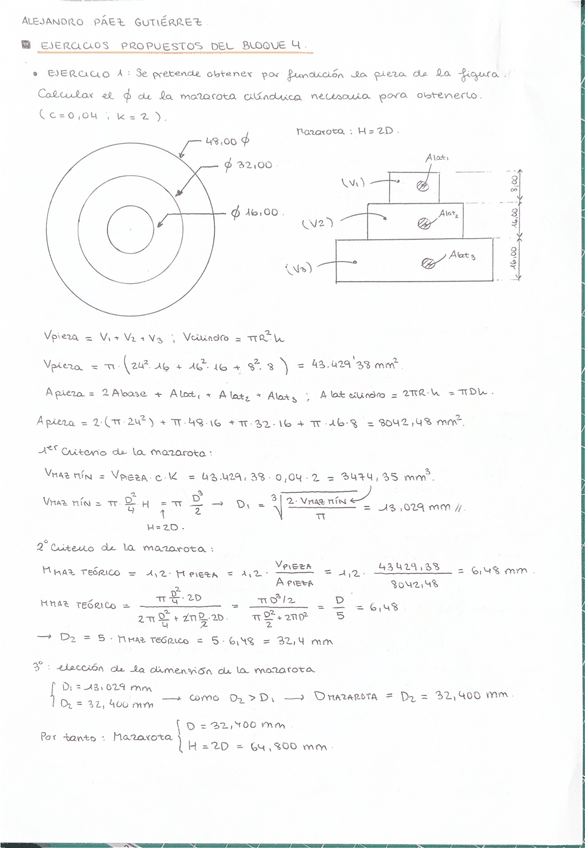 ALEJANDRO PÁEZ GUTIÉRREZ.
EJERCICIOS PROPUESTOS DEL BLOQUE 4.
• EJERCICIO 1: Se pretende obtener por fundición la pieza de la figura.
Calcular el ϕ de la mazarota cilíndrica necesaria para obtenerlo.
(C=0,04 ; K=2).
Mazarota: H=2D.
48,00 ϕ
ϕ 32,00
ϕ 16,00
(V1)
Alat1
8,00
(V2)
Alat2
16,00
(V3)
Alat3
16,00
Vpieza = V1 + V2 + V3 ; Vcilindro = πR²h
Vpieza = π · (24² · 16 + 16² · 16 + 8² · 8) = 43.429'38 mm².
Apieza = 2Abase + Alat1 + Alat2 + Alat3 ; Alat cilindro = 2πR·h = πDh.
Apieza = 2·(π·24²) + π·48·16 + π·32·16 + π·16·8 = 8042,48 mm².
1er Criterio de la mazarota:
VMAZ MÍN = VPIEZA · C · K = 43.429,38 · 0,04 · 2 = 3474,35 mm³.
VMAZ MÍN = π D²/4 H = π D³/2 → D1 = ∛(2·VMAZ MÍN/π) = 13,029 mm //.
↑
H=2D.
2º Criterio de la mazarota:
MMAZ TEÓRICO = 1,2 · MPIEZA = 1,2 · VPIEZA/APIEZA = 1,2 · 43429,38/8042,48 = 6,48 mm.
MMAZ TEÓRICO = (π D²/4 · 2D)/(2π D²/4 + 2π D/2 · 2D) = (πD³/2)/(π D²/2 + 2πD²) = D/5 = 6,48
→ D2 = 5 · MMAZ TEÓRICO = 5 · 6,48 = 32,4 mm
3º: elección de la dimensión de la mazarota
{ D1 = 13,029 mm
D2 = 32,400 mm → como D2 > D1 → DMAZAROTA = D2 = 32,400 mm.
Por tanto: Mazarota { D = 32,400 mm
H = 2D = 64,800 mm.